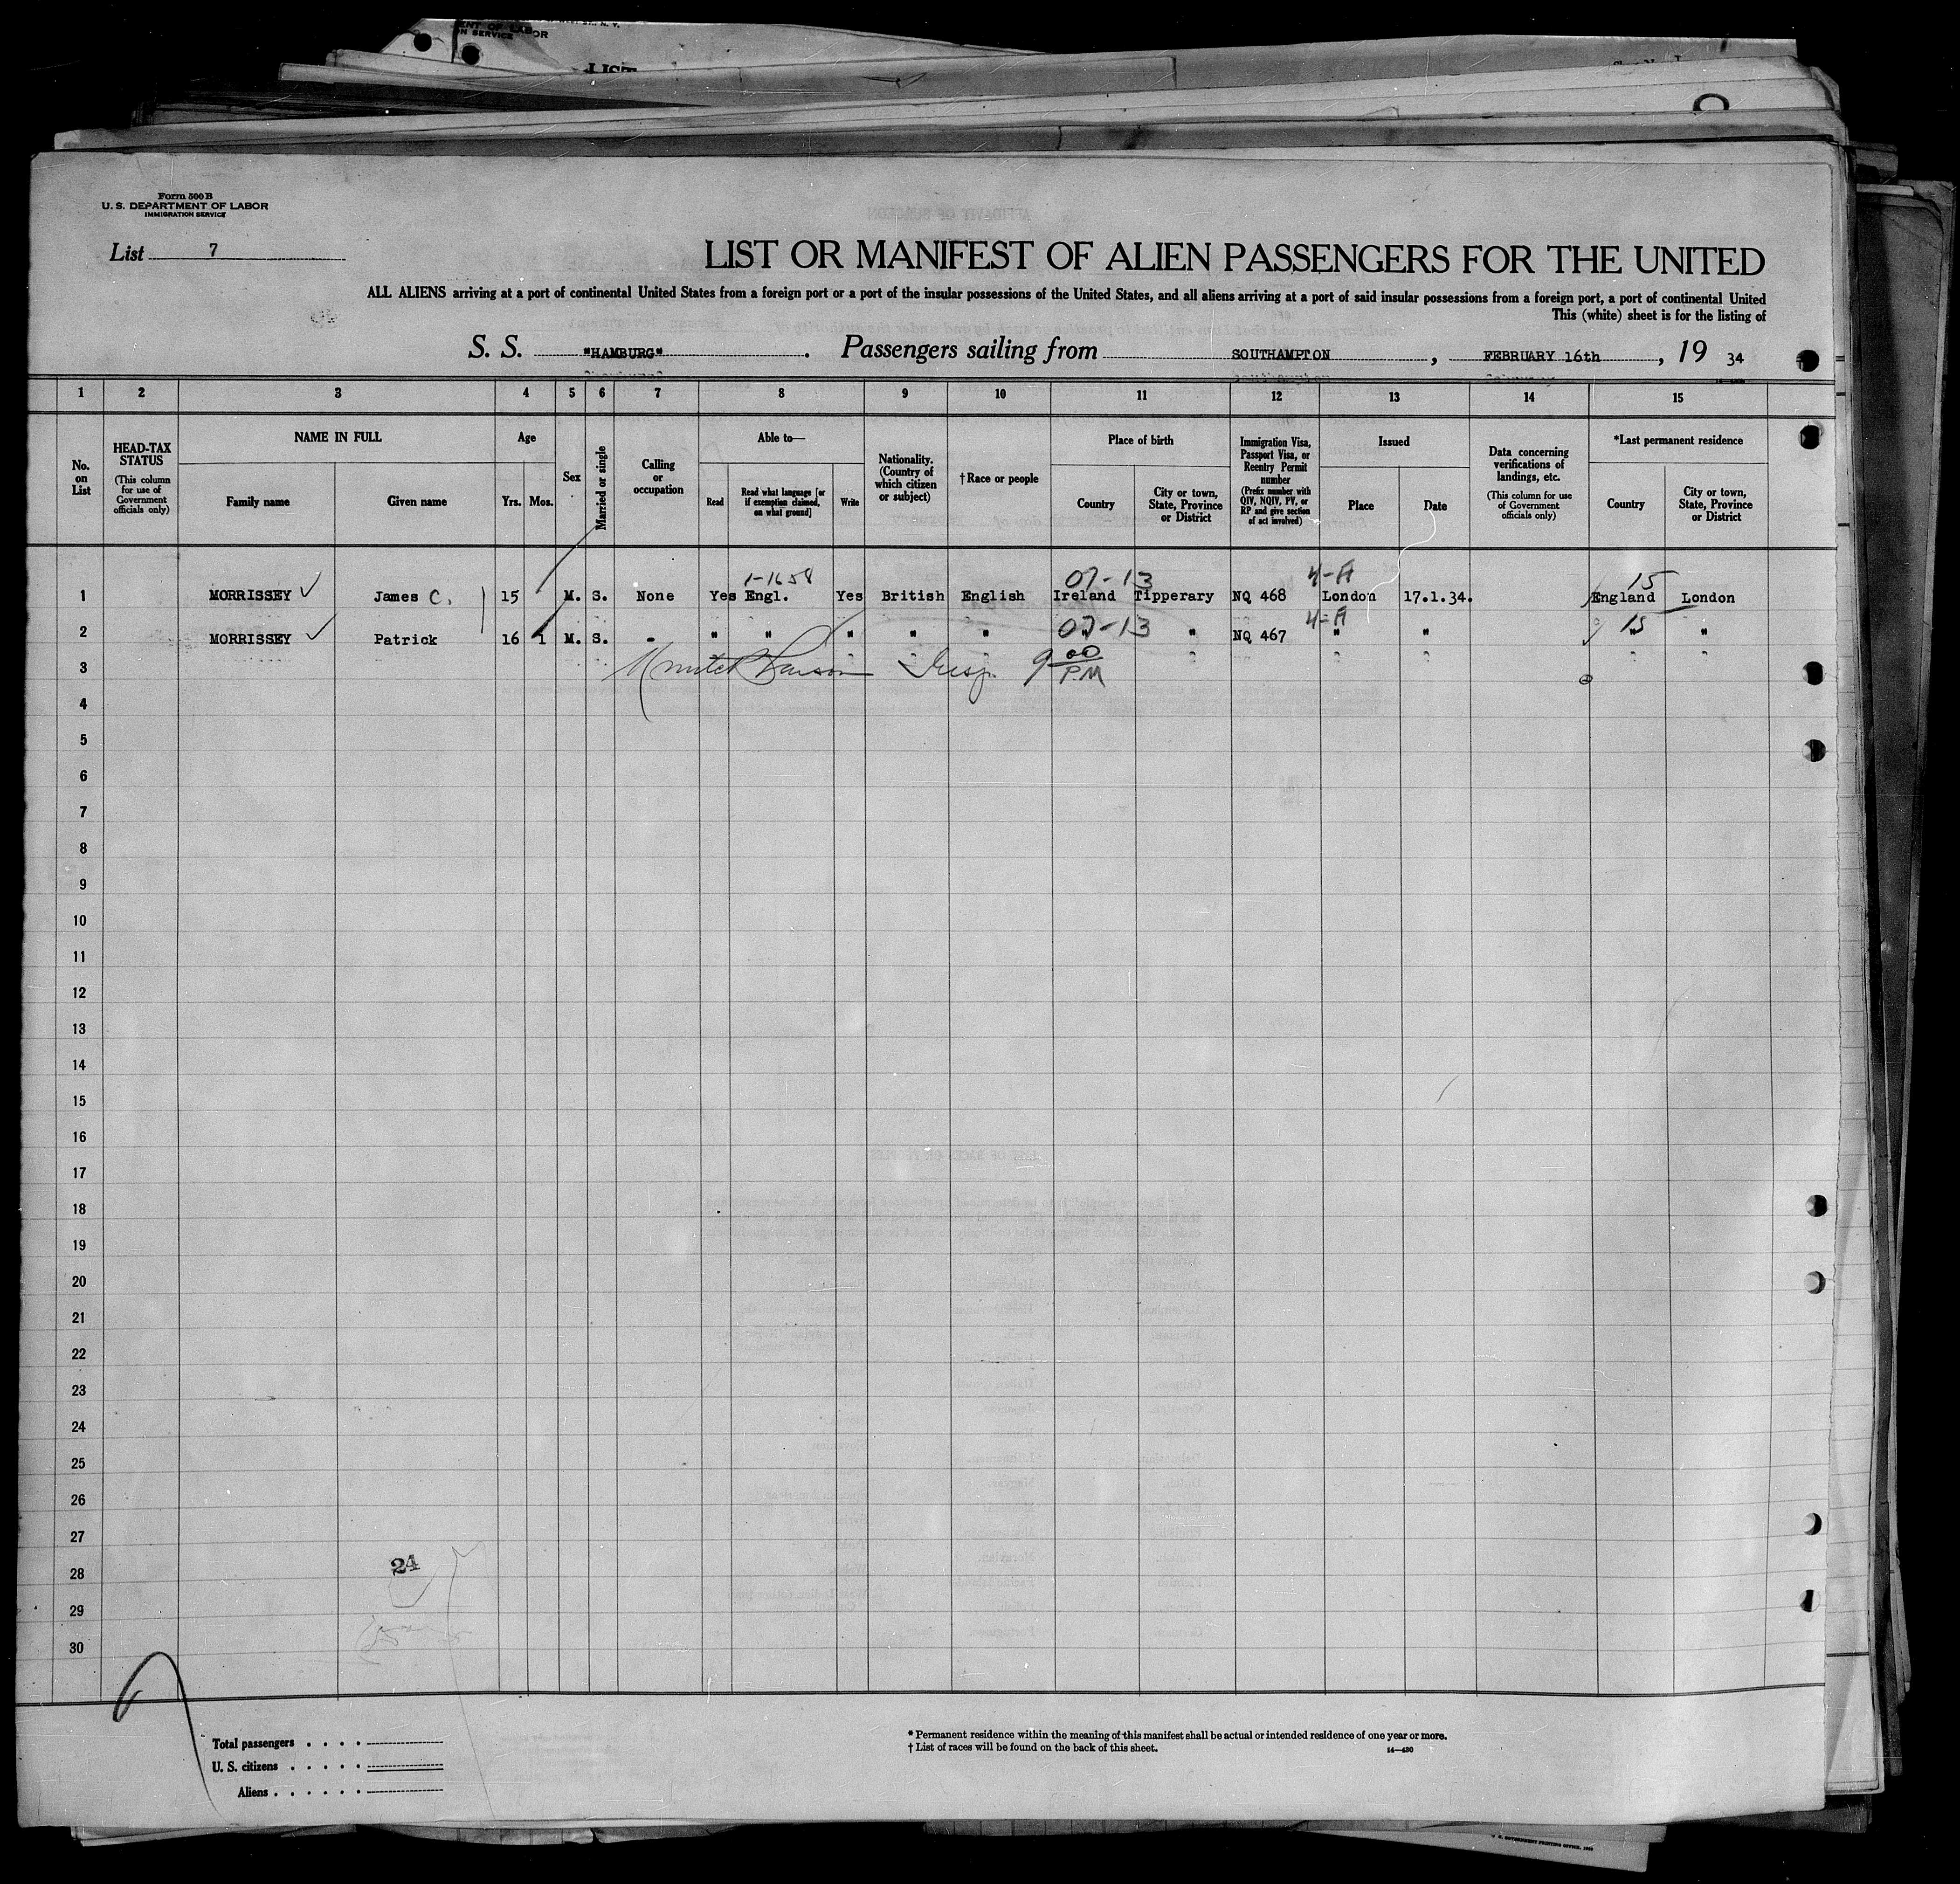 ENT OF LABOR
N SERVICE
LIST
Form 500 B
U. S. DEPARTMENT OF LABOR
IMMIGRATION SERVICE
List 7
LIST OR MANIFEST OF ALIEN PASSENGERS FOR THE UNITED
ALL ALIENS arriving at a port of continental United States from a foreign port or a port of the insular possessions of the United States, and all aliens arriving at a port of said insular possessions from a foreign port, a port of continental United
This (white) sheet is for the listing of
S. S. "HAMBURG". Passengers sailing from SOUTHAMPTON, FEBRUARY 16th, 19 34
1 2 3 4 5 6 7 8 9 10 11 12 13 14 15
No. on List
HEAD-TAX STATUS (This column for use of Government officials only)
NAME IN FULL
Family name
Given name
Age
Yrs. Mos.
Sex
Married or single
Calling or occupation
Able to—
Read
Read what language [or if exemption claimed, on what ground]
Write
Nationality. (Country of which citizen or subject)
† Race or people
Place of birth
Country
City or town, State, Province or District
Immigration Visa, Passport Visa, or Reentry Permit number (Prefix number with QIV, NQIV, PV, or RP and give section of act involved)
Issued
Place
Date
Data concerning verifications of landings, etc. (This column for use of Government officials only)
*Last permanent residence
Country
City or town, State, Province or District
1-1658 07-13 4-A 15
1 MORRISSEY James C. 15 M. S. None Yes Engl. Yes British English Ireland Tipperary NQ 468 London 17.1.34. England London
07-13 4-A 15
2 MORRISSEY Patrick 16 1 M. S. - " " " " " " NQ 467 " " " "
3 Insp. 9 00 P.M
4
5
6
7
8
9
10
11
12
13
14
15
16
17
18
19
20
21
22
23
24
25
26
27
28 24
29
30
Total passengers
U. S. citizens
Aliens
* Permanent residence within the meaning of this manifest shall be actual or intended residence of one year or more.
† List of races will be found on the back of this sheet. 14—430